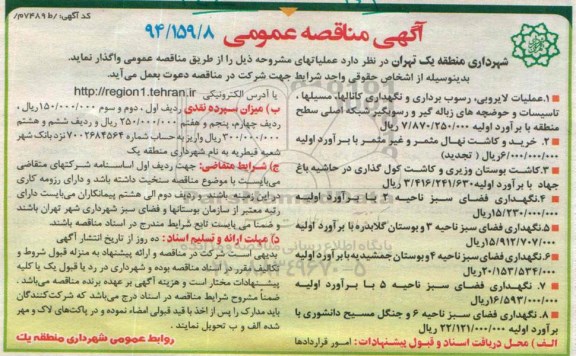 کد آگهی: /ط ۷۴۸۹م/
آگهی مناقصه عمومی ۹۴/۱۵۹/۸
شهرداری منطقه یک تهران در نظر دارد عملیاتهای مشروحه ذیل را از طریق مناقصه عمومی واگذار نماید.
بدینوسیله از اشخاص حقوقی واجد شرایط جهت شرکت در مناقصه دعوت بعمل می‌آید.
۱.عملیات لایروبی، رسوب برداری و نگهداری کانالها، مسیلها،
تاسیسات و حوضچه های زباله گیر و رسوبگیر شبکه اصلی سطح
منطقه با برآورد اولیه ۷/۸۷۰/۲۵۰/۰۰۰ ریال
۲. خرید و کاشت نهال مثمر و غیر مثمر با برآورد اولیه
۶/۰۰۰/۰۰۰/۰۰۰ریال ( تجدید)
۳.کاشت بوستان وزیری و کاشت کول گذاری در حاشیه باغ
جهاد با برآورد اولیه ۳/۴۱۶/۲۴۱/۶۳۰ ریال
۴.نگهداری فضای سبز ناحیه ۲ با برآورد اولیه
۱۵/۲۳۰/۰۰۰/۰۰۰ریال
۵.نگهداری فضای سبز ناحیه ۳ و بوستان گلابدره با برآورد اولیه
۱۵/۹۱۲/۷۰۷/۰۰۰ریال
۶.نگهداری فضای سبز ناحیه ۴ و بوستان جمشیدیه با برآورد اولیه
۲۰/۱۵۳/۵۳۴/۰۰۰ریال
۷. نگهداری فضای سبز ناحیه ۵ با برآورد اولیه
۱۶/۵۹۳/۰۰۰/۰۰۰ریال
۸.نگهداری فضای سبز ناحیه ۶ و جنگل مسیح دانشوری با
برآورد اولیه ۲۲/۱۲۱/۰۰۰/۰۰۰ ریال
الف ) محل دریافت اسناد و قبول پیشنهادات : امور قراردادها
یا آدرس الکترونیکی http://region1.tehran.ir
ب ) میزان سپرده نقدی ردیف اول ، دوم و سوم ۱۵۰/۰۰۰/۰۰۰ریال ،
ردیف چهارم، پنجم و هفتم ۲۵۰/۰۰۰/۰۰۰ ریال و ردیف ششم و هشتم
۳۰۰/۰۰۰/۰۰۰ریال واریز به حساب شماره 7002684564 نزد بانک شهر
شعبه قیطریه به نام شهرداری منطقه یک
ج) شرایط متقاضی: جهت ردیف اول اساسنامه شرکتهای متقاضی
می‌بایست با موضوع مناقصه سنخیت داشته باشد و دارای رزومه کاری
در این زمینه باشد و ردیف دوم الی هشتم پیمانکاران می‌بایست دارای
رتبه معتبر از سازمان بوستانها و فضای سبز شهرداری شهر تهران باشند
و ضمناً می بایست تابع شرایط مندرج در اسناد مناقصه باشند.
د) مهلت ارائه و تسلیم اسناد : ده روز از تاریخ انتشار آگهی
بدیهی است شرکت در مناقصه و ارائه پیشنهاد به منزله قبول شروط و
تکالیف مقرر در اسناد مناقصه بوده و شهرداری در رد یا قبول یک یا کلیه
پیشنهادات مختار است و هزینه آگهی بر عهده برنده مناقصه می‌باشد .
ضمناً مشروح شرایط مناقصه در اسناد درج می‌باشد که شرکت‌کنندگان
باید مدارک را پس از اخذ با قید قبولی امضاء نموده و در پاکت‌های لاک و مهر
شده الف و ب تحویل نمایند .
روابط عمومی شهرداری منطقه یک